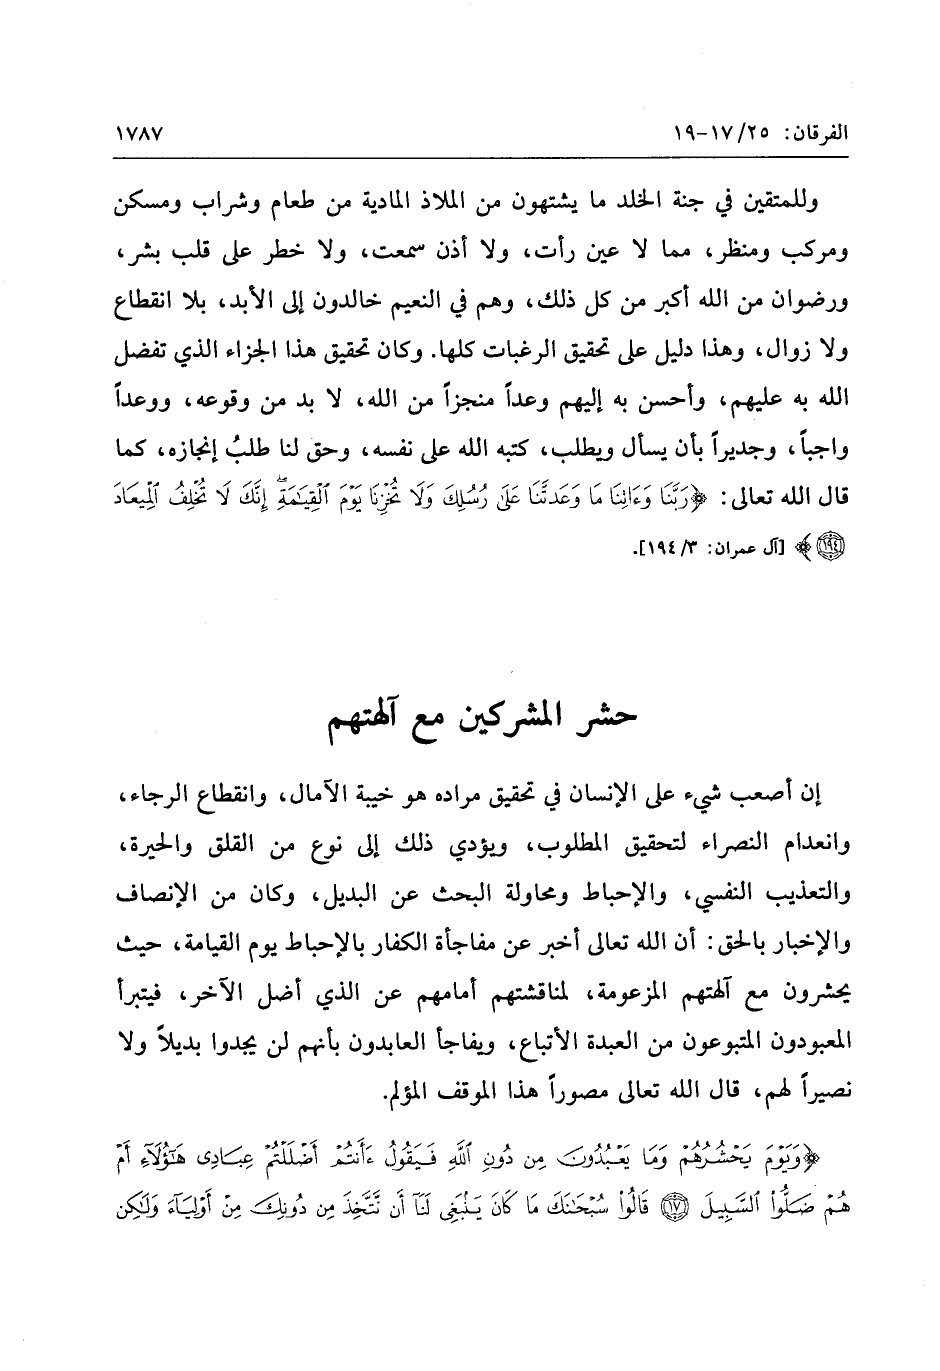 الفرقان: ٢٥/ ١٧-١٩ ١٧٨٧
وللمتقين في جنة الخلد ما يشتهون من الملاذ المادية من طعام وشراب ومسكن
ومركب ومنظر، مما لا عين رأت، ولا أذن سمعت، ولا خطر على قلب بشر،
ورضوان من الله أكبر من كل ذلك، وهم في النعيم خالدون إلى الأبد، بلا انقطاع
ولا زوال، وهذا دليل على تحقيق الرغبات كلها. وكان تحقيق هذا الجزاء الذي تفضل
الله به عليهم، وأحسن به إليهم وعداً منجزاً من الله، لا بد من وقوعه، ووعداً
واجباً، وجديراً بأن يسأل ويطلب، كتبه الله على نفسه، وحق لنا طلبُ إنجازه، كما
قال الله تعالى: ﴿رَبَّنَا وَءَاتِنَا مَا وَعَدتَّنَا عَلَىٰ رُسُلِكَ وَلَا تُخْزِنَا يَوْمَ ٱلْقِيَـٰمَةِۖ إِنَّكَ لَا تُخْلِفُ ٱلْمِيعَادَ
١٩٤﴾ [آل عمران: ٣/ ١٩٤].
حشر المشركين مع آلهتهم
إن أصعب شيء على الإنسان في تحقيق مراده هو خيبة الآمال، وانقطاع الرجاء،
وانعدام النصراء لتحقيق المطلوب، ويؤدي ذلك إلى نوع من القلق والحيرة،
والتعذيب النفسي، والإحباط ومحاولة البحث عن البديل، وكان من الإنصاف
والإخبار بالحق: أن الله تعالى أخبر عن مفاجأة الكفار بالإحباط يوم القيامة، حيث
يحشرون مع آلهتهم المزعومة، لمناقشتهم أمامهم عن الذي أضل الآخر، فيتبرأ
المعبودون المتبوعون من العبدة الأتباع، ويفاجأ العابدون بأنهم لن يجدوا بديلاً ولا
نصيراً لهم، قال الله تعالى مصوراً هذا الموقف المؤلم.
﴿وَيَوْمَ يَحْشُرُهُمْ وَمَا يَعْبُدُونَ مِن دُونِ ٱللَّهِ فَيَقُولُ ءَأَنتُمْ أَضْلَلْتُمْ عِبَادِى هَـٰٓؤُلَآءِ أَمْ
هُمْ ضَلُّوا۟ ٱلسَّبِيلَ ١٧ قَالُوا۟ سُبْحَـٰنَكَ مَا كَانَ يَنۢبَغِى لَنَآ أَن نَّتَّخِذَ مِن دُونِكَ مِنْ أَوْلِيَآءَ وَلَـٰكِن